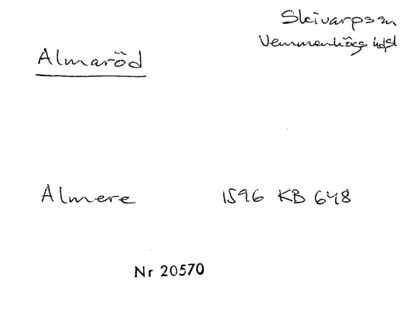 Skivarps sn
Vemmenhögs hd
Almaröd
Almere 1596 KB 648
Nr 20570